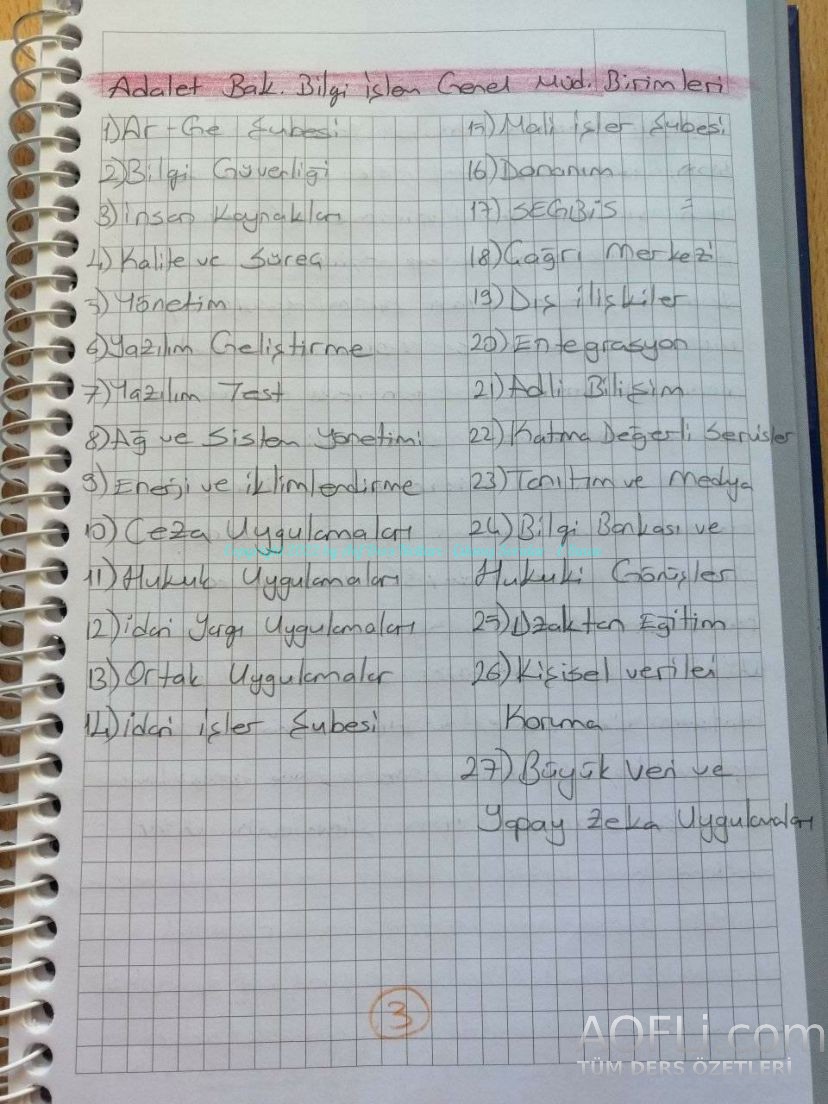 Adalet Bak. Bilgi işlem Genel Müd. Birimleri
1) Ar-Ge Şubesi
2) Bilgi Güvenliği
3) insan Kaynakları
4) Kalite ve Süreç
5) Yönetim
6) Yazılım Geliştirme
7) Yazılım Test
8) Ağ ve Sistem Yönetimi
9) Enerji ve iklimlendirme
10) Ceza Uygulamaları
11) Hukuk Uygulamaları
12) idari Yargı Uygulamaları
13) Ortak Uygulamalar
14) idari işler Şubesi
15) Mali işler Şubesi
16) Donanım =
17) SEGBİS =
18) Çağrı Merkezi
19) Dış ilişkiler
20) Entegrasyon
21) Adli Bilişim
22) Katma Değerli Servisler
23) Tanıtım ve Medya
24) Bilgi Bankası ve
Hukuki Görüşler
25) Uzaktan Eğitim
26) Kişisel verileri
Koruma
27) Büyük Veri ve
Yapay Zeka Uygulamaları
3
AOFLi.com
TÜM DERS ÖZETLERİ